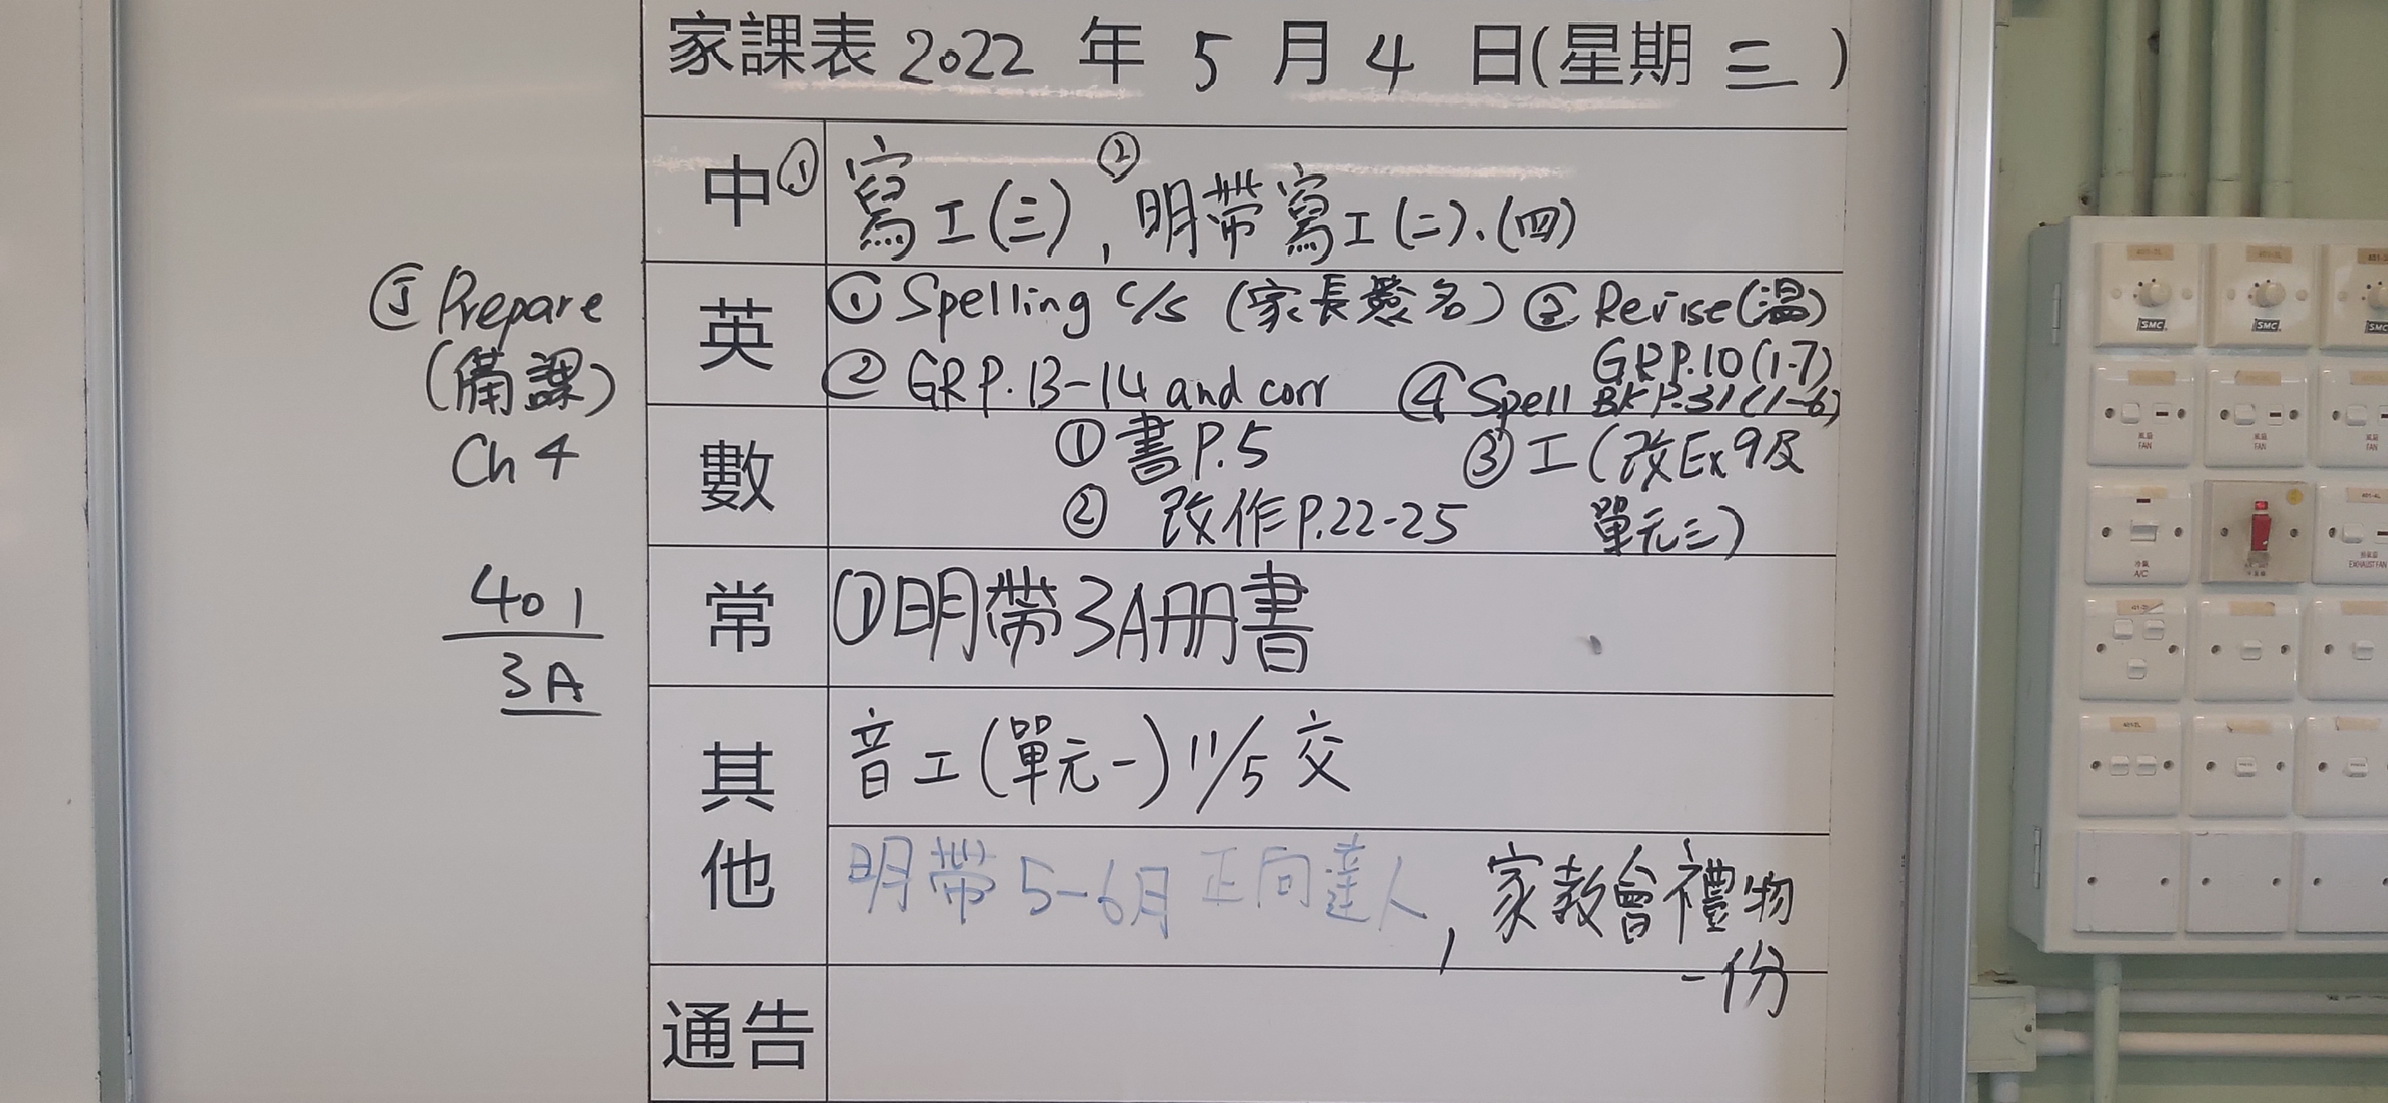 家課表 2022 年 5 月 4 日(星期 三 )
中 ① 寫工(三), ② 明帶寫工(二)、(四)
英 ① Spelling c/s (家長簽名) ③ Revise(溫)
GR P.10 (1-7)
② GR P.13-14 and corr ④ Spell BK P.31 (1-6)
⑤ Prepare
(備課)
Ch 4
數 ① 書 P.5 ③ 工(改Ex 9及
② 改作 P.22-25 單元三)
401
3A
常 ① 明帶3A冊書
其他 音工(單元一) 11/5 交
明帶 5-6月 正向達人, 家教會禮物
一份
通告
SMC
SMC
SMC
風扇
FAN
風扇
FAN
FAN
冷氣
A/C
EXHAUST FAN